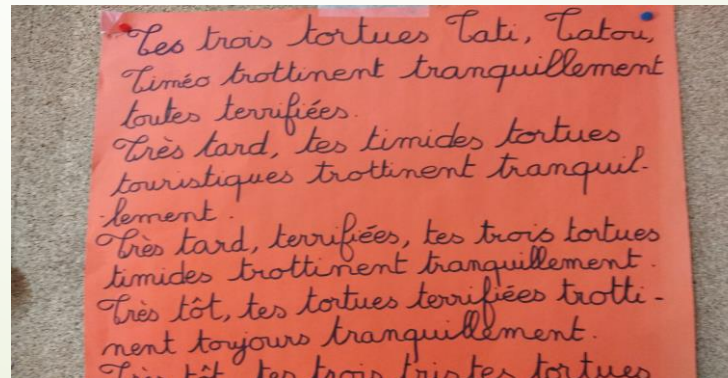 Tes trois tortues Tati, Tatou,
Timéo trottinent tranquillement
toutes terrifiées.
Très tard, tes timides tortues
touristiques trottinent tranquil-
-lement.
Très tard, terrifiées, tes trois tortues
timides trottinent tranquillement.
Très tôt, tes tortues terrifiées trotti-
nent toujours tranquillement.
Très tôt, tes trois tristes tortues